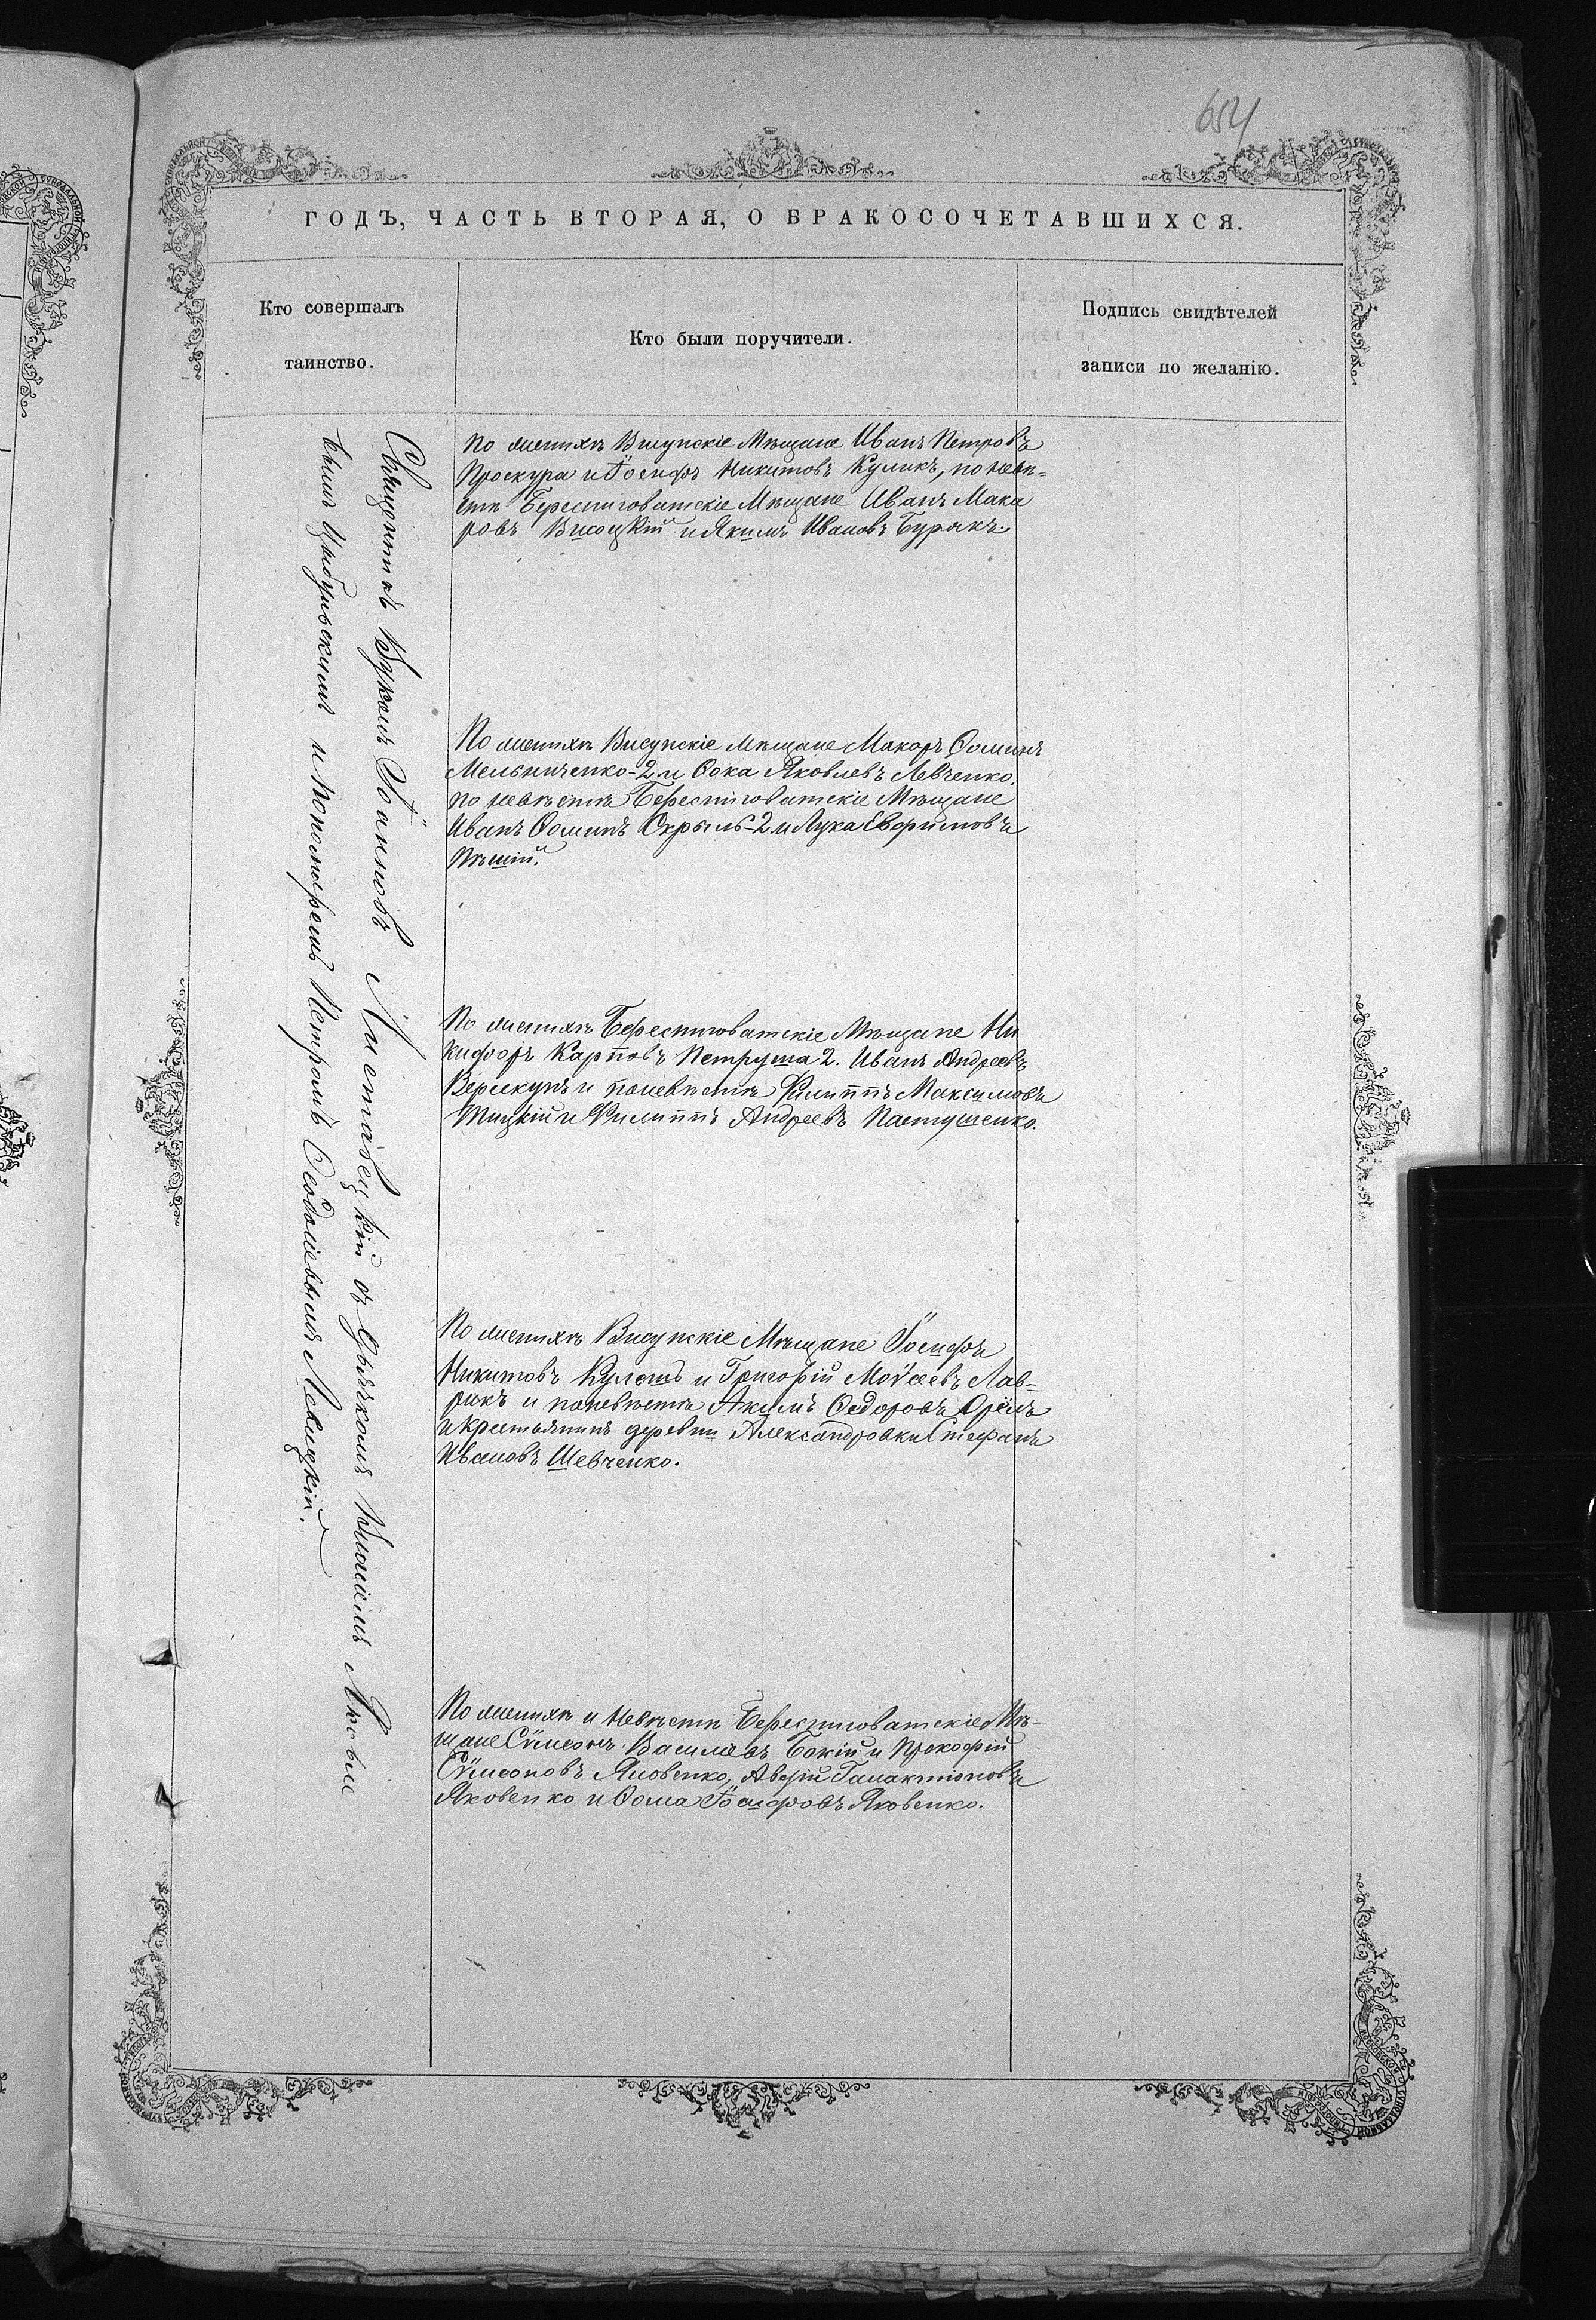 654
ГОДЪ, ЧАСТЬ ВТОРАЯ, О БРАКОСОЧЕТАВШИХСЯ.
Кто совершалъ
таинство.
Кто были поручители.
Подпись свидѣтелей
записи по желанію.
Священникъ Лукалъ Іоанновъ Листовецкій съ дьячкомъ Власіемъ Яковле
вымъ Цыбульскимъ и пономаремъ Петромъ Ѳеодосіевымъ Левицкій.
По женихѣ Висунскіе Мѣщане Иванъ Петровъ
Проскура и Іосифъ Никитовъ Куликъ, по невѣ-
стѣ Берестговатскіе Мѣщане Иванъ Мака
ровъ Висоцкій и Якимъ Ивановъ Бурякъ.
По женихѣ Висунскіе Мѣщане Макаръ Ѳоминъ
Мельниченко-2 и Ѳока Яковлевъ Левченко.
по невѣстѣ Берестговатскіе Мѣщане
Иванъ Ѳоминъ Скрыль-2 и Лука Евфимовъ
Пѣшій.
По женихѣ Берестговатскіе Мѣщане Ни
кифоръ Карповъ Петруша 2. Иванъ Андреевъ
Верискунъ и поневѣстѣ Филиппъ Максимовъ
и Филиппъ Андреевъ Пастушенко.
По женихѣ Висунскіе Мѣщане Іосифъ
Никитовъ Кулешъ и Григорій Моѵсеевъ Лав-
рикъ и поневѣстѣ Акимъ Ѳедоровъ Орёлъ
и крестьянинъ деревни Александровки Стефанъ
Ивановъ Шевченко.
По женихѣ и невѣстѣ Берестговатскіе Мѣ-
щане Сѵмеонъ Василіевъ Божій и Прокофій
Сѵмеоновъ Яловенко, Аверій Галактіоновъ
Яковенко и Ѳома Іосифовъ Яковенко.